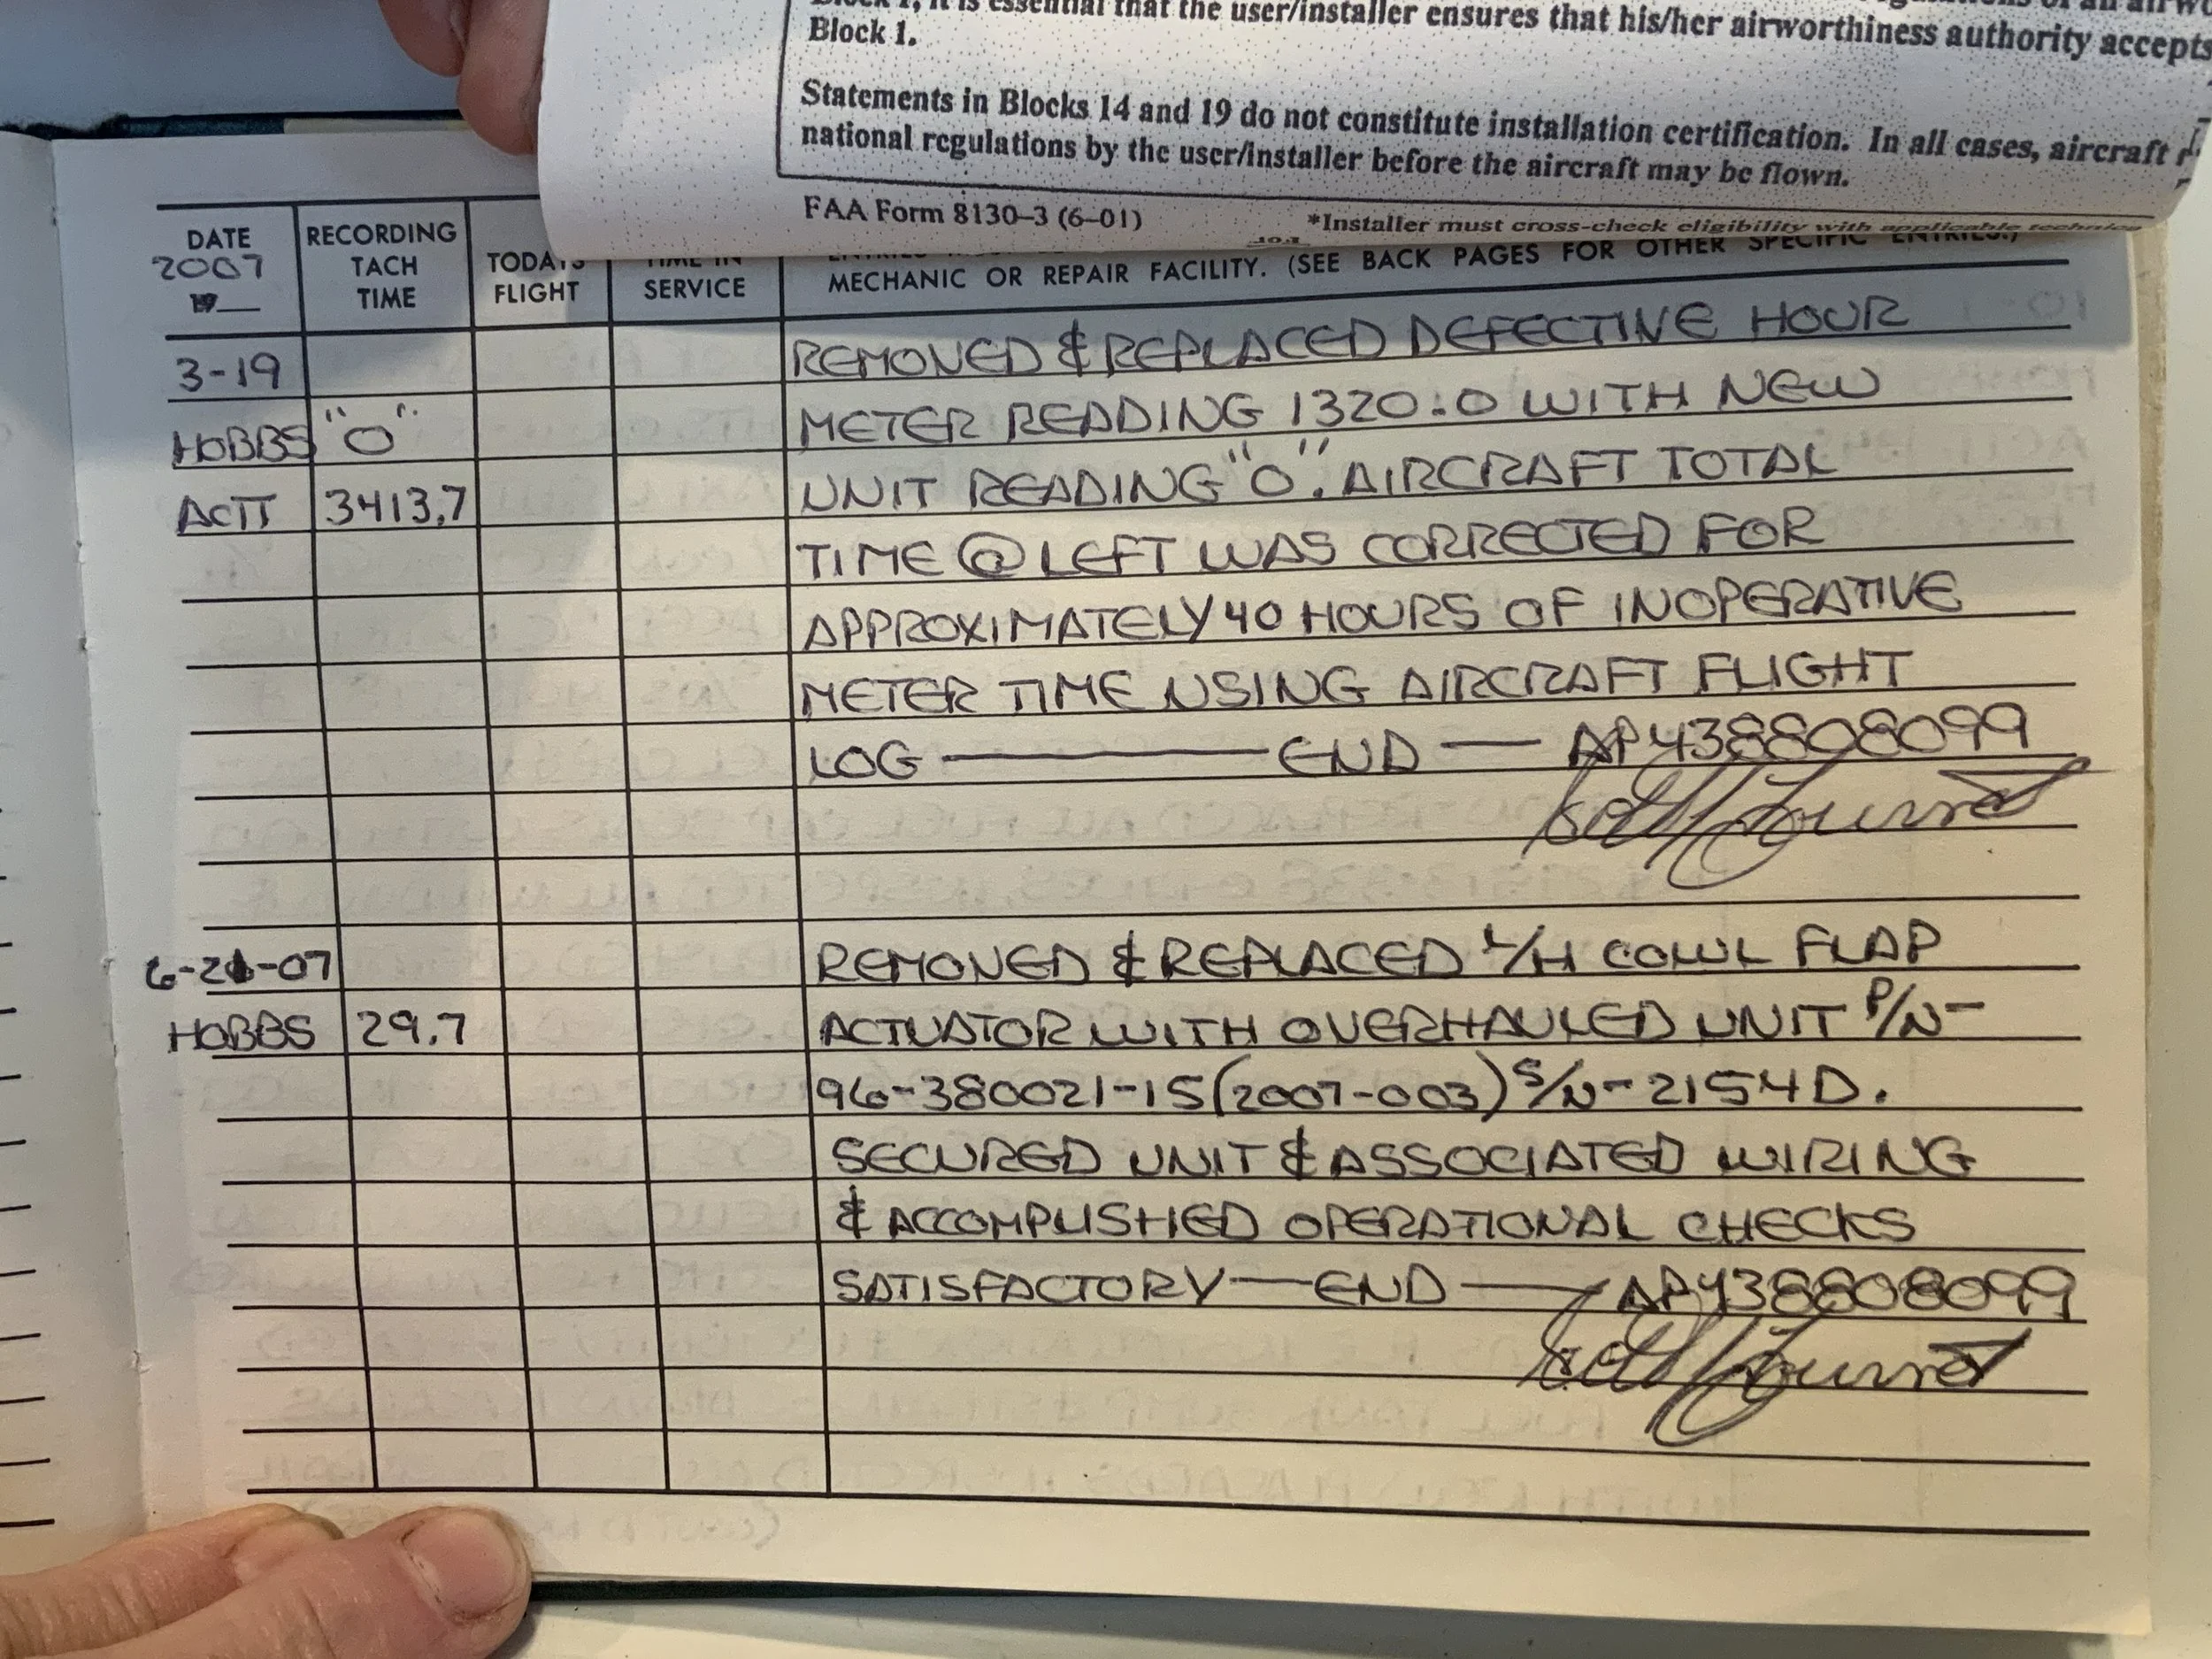 it is essential that the user/installer ensures that his/her airworthiness authority accepts
Block 1.
Statements in Blocks 14 and 19 do not constitute installation certification. In all cases, aircraft
national regulations by the user/installer before the aircraft may be flown.
FAA Form 8130–3 (6–01)
*Installer must cross-check eligibility with applicable
DATE
2007
19
RECORDING
TACH
TIME
TODAY'S
FLIGHT
TIME IN
SERVICE
MECHANIC OR REPAIR FACILITY. (SEE BACK PAGES FOR OTHER SPECIFIC ENTRIES.)
3-19 REMOVED & REPLACED DEFECTIVE HOUR
HOBBS "0" METER READING 1320.0 WITH NEW
ACTT 3413.7 UNIT READING "0". AIRCRAFT TOTAL
TIME @ LEFT WAS CORRECTED FOR
APPROXIMATELY 40 HOURS OF INOPERATIVE
METER TIME USING AIRCRAFT FLIGHT
LOG — END — AP438808099
6-21-07 REMOVED & REPLACED L/H COWL FLAP
HOBBS 29.7 ACTUATOR WITH OVERHAULED UNIT P/N-
96-380021-15(2007-003) S/N-2154D.
SECURED UNIT & ASSOCIATED WIRING
& ACCOMPLISHED OPERATIONAL CHECKS
SATISFACTORY — END — AP438808099